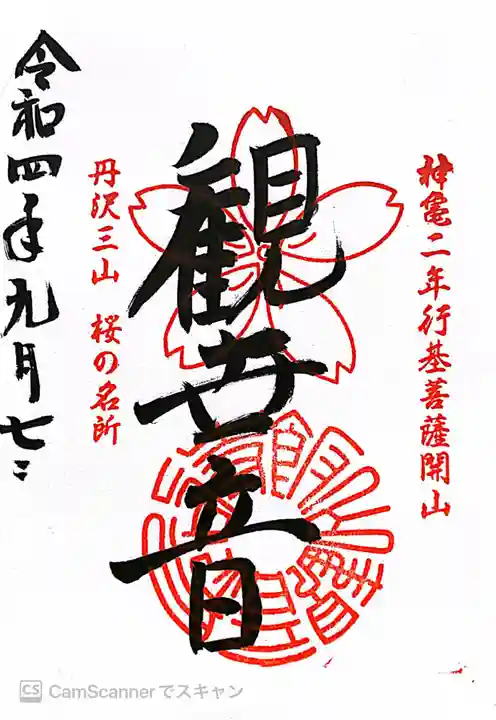 神亀二年行基菩薩開山
観世音
丹沢三山 桜の名所
令和四年九月七
CS CamScannerでスキャン